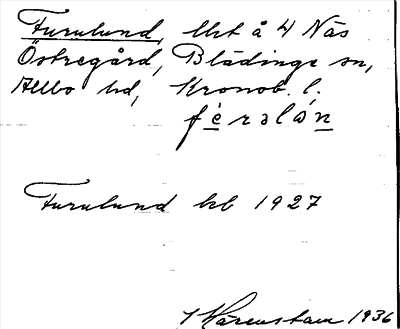 Furulund, lht å 4 Näs
Östregård, Blädinge sn,
Allbo hd, Kronob. l.
fèrəlón
Furulund kb 1927
Harenstam 1936